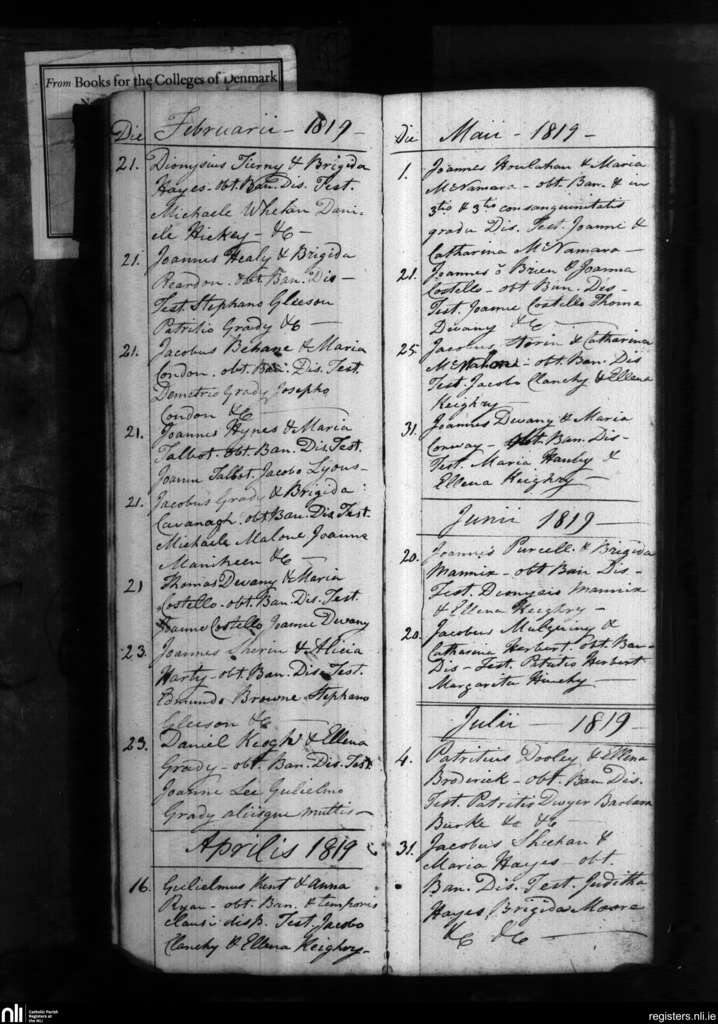 From Books for the Colleges of Denmark
Die Februarii - 1819 -
21. Dionysius Tierny & Brigida
Hayes - obt. Ban. Dis. Test.
Michaele Whelan Dani-
ele Hickey - &c -
21. Joannes Healy & Brigida
Reardon. obt. Ban. Dis -
Test. Stephano Gleeson
Patritio Grady &c -
21. Jacobus Behane & Maria
Condon. obt. Ban. Dis. Test.
Demetrio Grady Josepho
Condon &c
21. Joannes Hynes & Maria
Talbot. obt. Ban. Dis. Test.
Joanne Talbot. Jacobo Lyons -
21. Jacobus Grady & Brigida
Cavanagh. obt. Ban. Dis. Test.
Michaele Malone Joanne
&c -
21 Thomas Devany & Maria
Costello - obt. Ban. Dis. Test.
Joanne Costello Joanne Devany
23. Joannes & Alicia
Harty - obt. Ban. Dis. Test.
Edmundo Browne Stephano
Gleeson &c -
23. Daniel Keogh & Ellena
Grady - obt. Ban. Dis. Test.
Joanne Lee Gulielmo
Grady aliisque multis -
Aprilis 1819
16. Gulielmus Kent & Anna
Ryan - obt. Ban. & temporis
clausi disp. Test. Jacobo
Clanchy & Ellena Keighry -
Die Maii - 1819 -
1. Joannes Houlahan & Maria
McNamara - obt. Ban. & in
3tio & 3tio consanguinitatis
gradu Dis. Test. Joanne &
Catharina McNamara -
21. Joannes o Brien & Joanna
Costello - obt. Ban. Dis -
Test. Joanne Costello Thoma
Devany &c -
25 Jacobus & Catharina
McMahon - obt. Ban. Dis
Test. Jacobo Clanchy & Ellena
Keighry -
31. Joannes Devany & Maria
Conway - obt. Ban. Dis -
Test. Maria &
Ellena Keighry -
Junii 1819 -
20. Joannes Purcell & Brigida
Mannix - obt. Ban. Dis -
Test. Dionysio Mannix
& Ellena Keighry -
20. Jacobus &
Catharina Herbert. obt. Ban -
Dis - Test. Patritio Herbert
Margarita Hinchy -
Julii - 1819 -
4. Patritius Dooley & Ellena
Broderick - obt. Ban. Dis.
Test. Patritio Dwyer Barbara
Burke &c &c -
31. Jacobus Sheehan &
Maria Hayes - obt.
Ban. Dis. Test. Juditha
Hayes Brigida Moore
&c &c -
nli Catholic Parish
Registers at
the NLI
registers.nli.ie